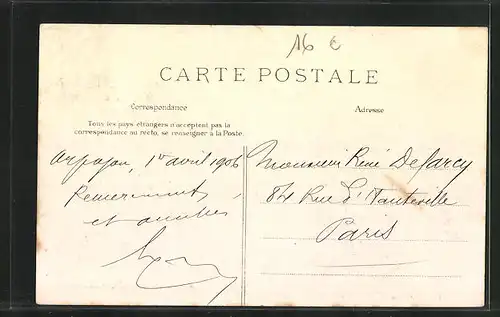 16 €
CARTE POSTALE
Correspondance
Adresse
Tous les pays étrangers n'acceptent pas la
correspondance au recto, se renseigner à la Poste.
Arpajon, 1er avril 1906
Remerciements
et amitiés
Monsieur René Delarcy
84 Rue d'Hauteville
Paris